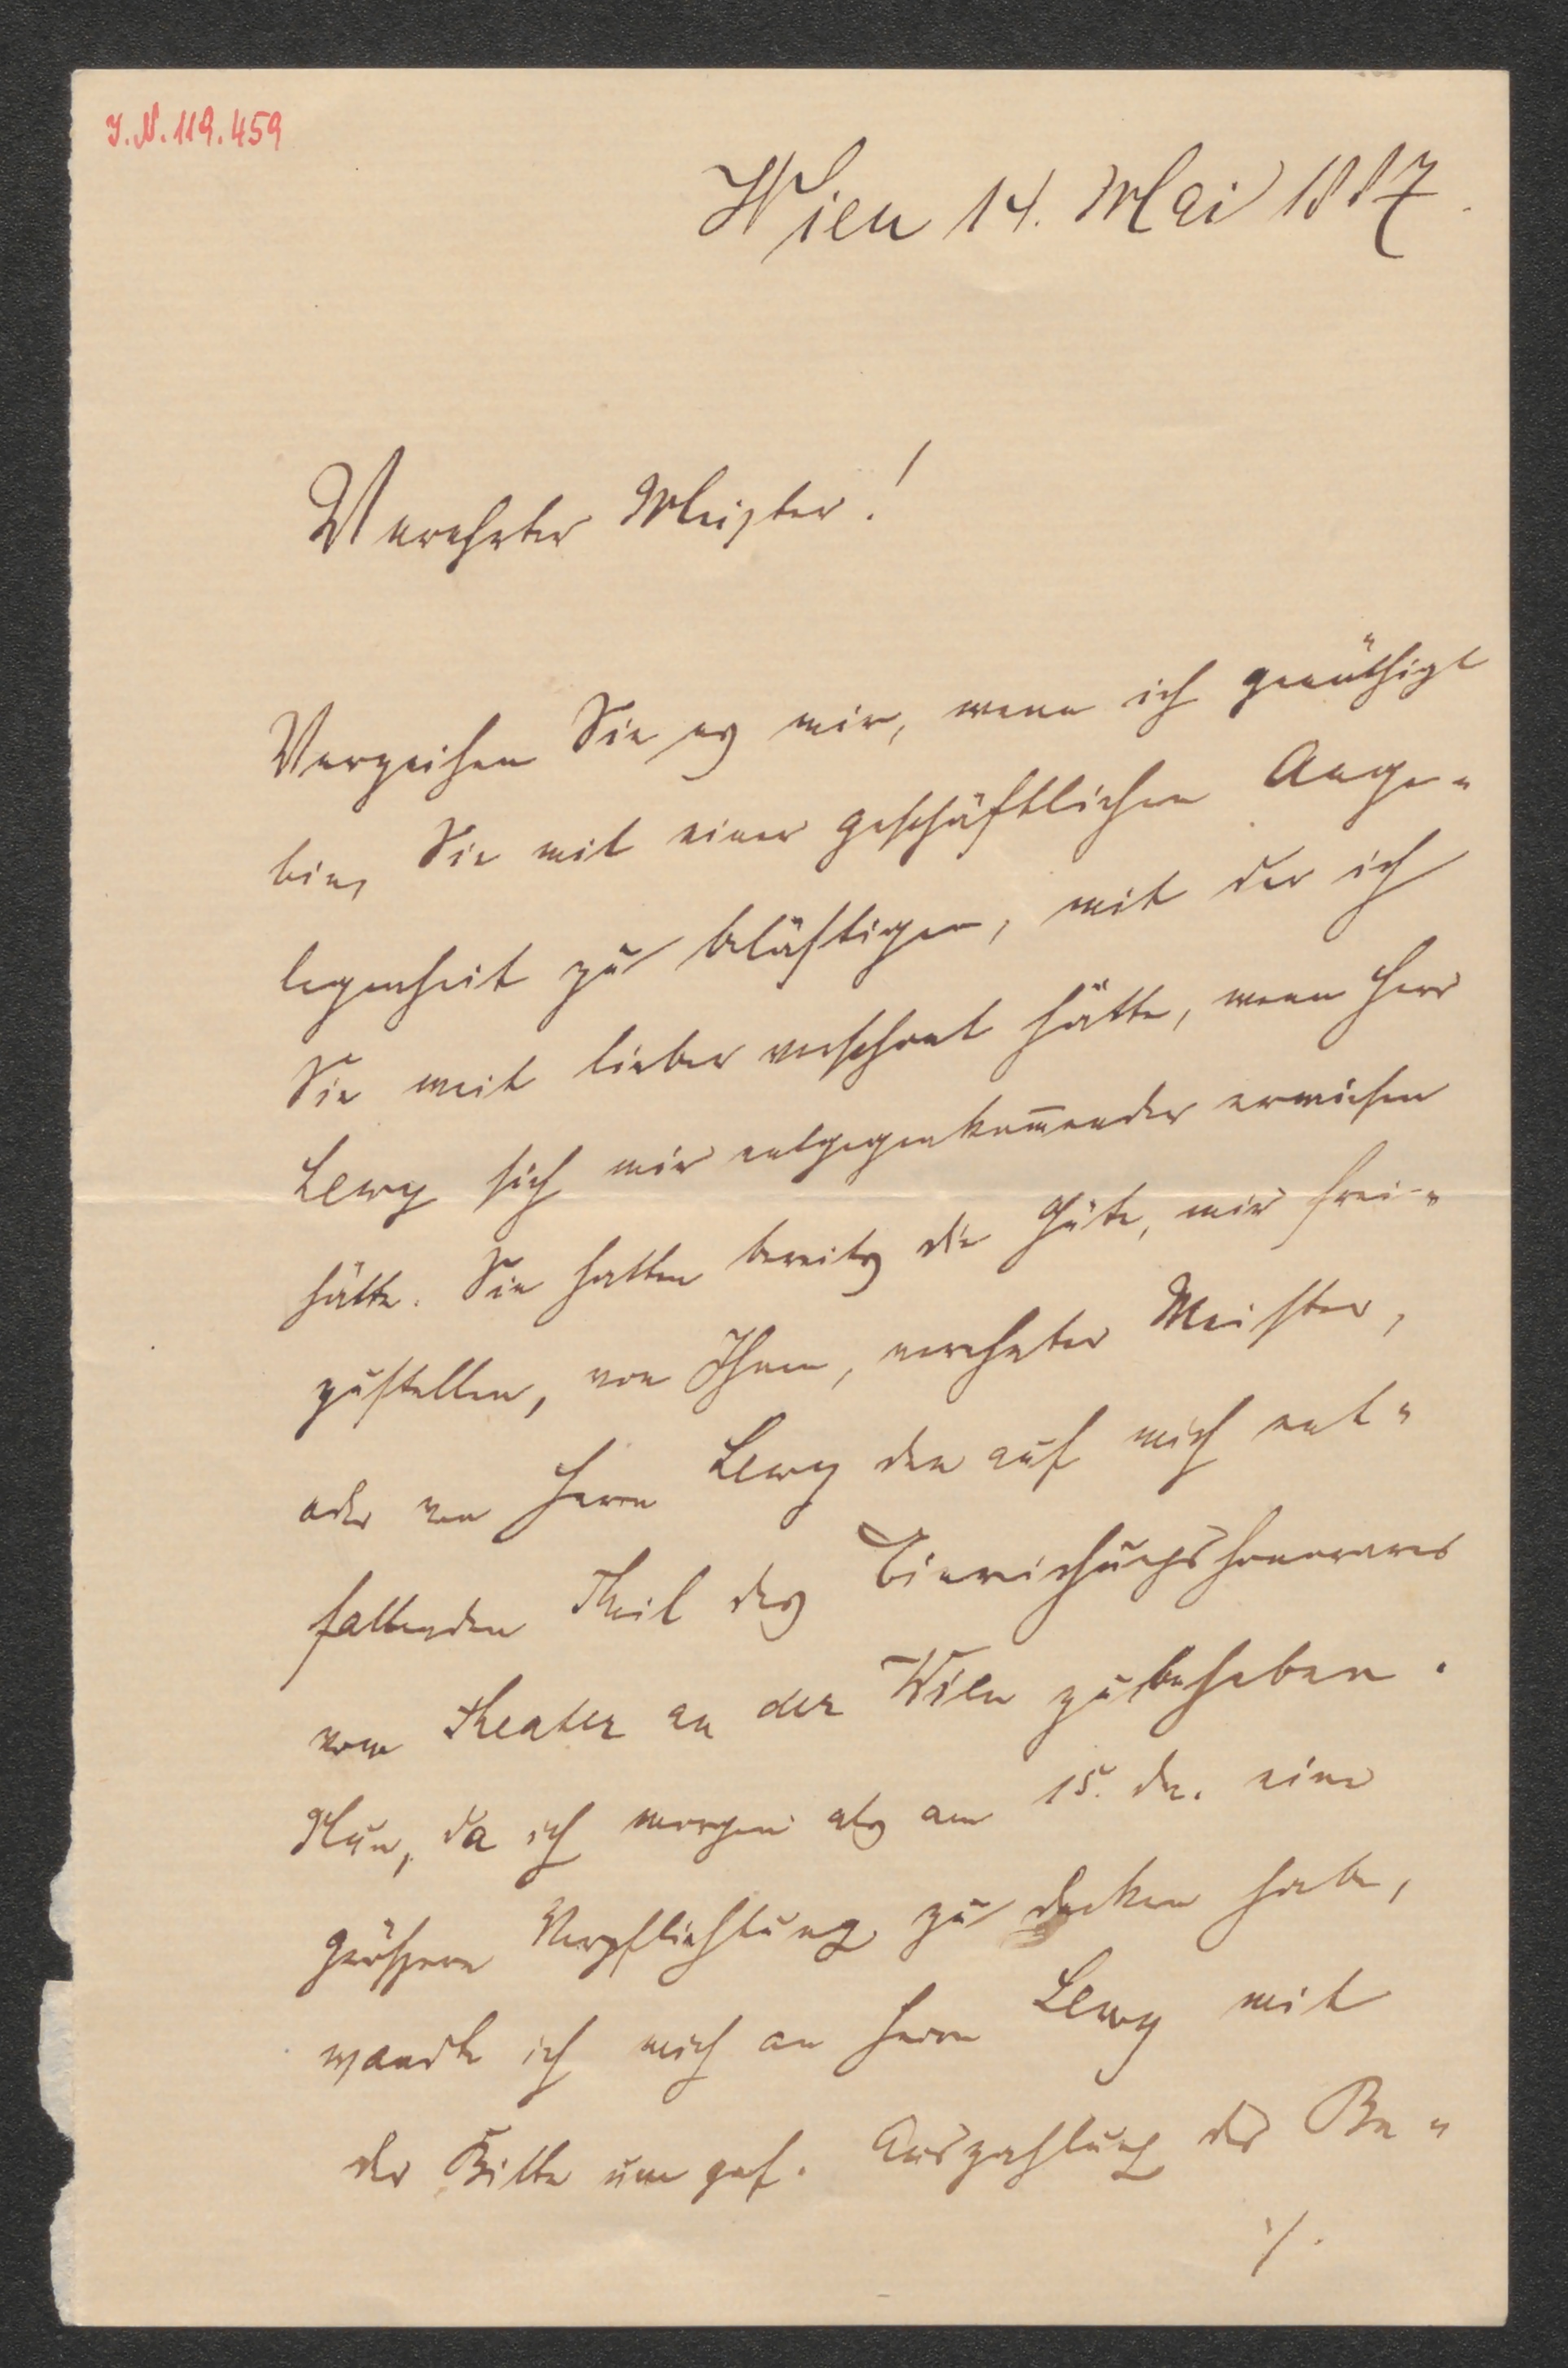 J.N.119.459
Wien 14. Mai 1887.
Verehrter Meister!
Verzeihen Sie es mir, wenn ich genöthigt
bin, Sie mit einer geschäftlichen Ange-
legenheit zu belästigen, mit der ich
Sie weit lieber verschont hätte, wenn Herr
Lewy sich mir entgegenkom̅ender erwiesen
hätte. Sie hatten bereits die Güte, mir frei-
zustellen, von Ihnen, verehrter Meister,
oder von Herrn Lewy den auf mich ent-
fallenden Theil des Einreichungshonorares
vom Theater an der Wien zu beheben.
Nun, da ich morgen als am 15. ds. eine
größere Verpflichtung zu decken habe,
wandte ich mich an Herrn Lewy mit
der Bitte um gef. Auszahlung des Be-
./.